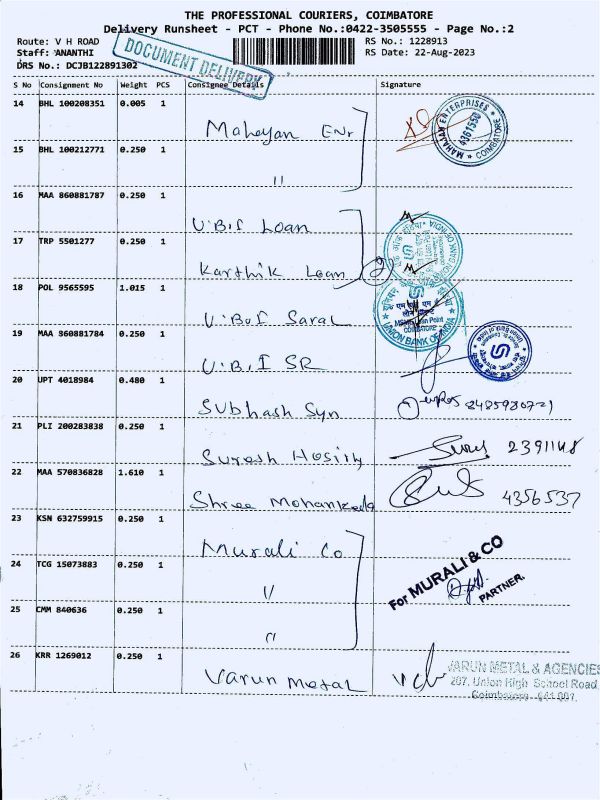 THE PROFESSIONAL COURIERS, COIMBATORE
Delivery Runsheet - PCT - Phone No.:0422-3505555 - Page No.:2
Route: V H ROAD
RS No.: 1228913
Staff: ANANTHI
RS Date: 22-Aug-2023
DRS No.: DCJB122891302
DOCUMENT DELIVERY
S No Consignment No Weight PCS Consignee Details Signature
14 BHL 100208351 0.005 1
Mahayan Enr
MAHAJAN ENTERPRISES * COIMBATORE
4361558
15 BHL 100212771 0.250 1
"
16 MAA 860881787 0.250 1
U.B.I Loan
17 TRP 5501277 0.250 1
Karthik Loan
18 POL 9565595 1.015 1
U.B.I Saral
UNION BANK OF INDIA
COIMBATORE
19 MAA 860881784 0.250 1
U.B.I SR
20 UPT 4018984 0.480 1
Subhash Syn
21 PLI 200283838 0.250 1
Suresh Hosiry
2391148
22 MAA 570836828 1.610 1
Shree Mohankada
4356537
23 KSN 632759915 0.250 1
Murali Co
For MURALI & CO
PARTNER.
24 TCG 15073883 0.250 1
"
25 CMM 840636 0.250 1
"
26 KRR 1269012 0.250 1
Varun Metal
VARUN METAL & AGENCIES
207, Union High School Road
Coimbatore - 641 001.